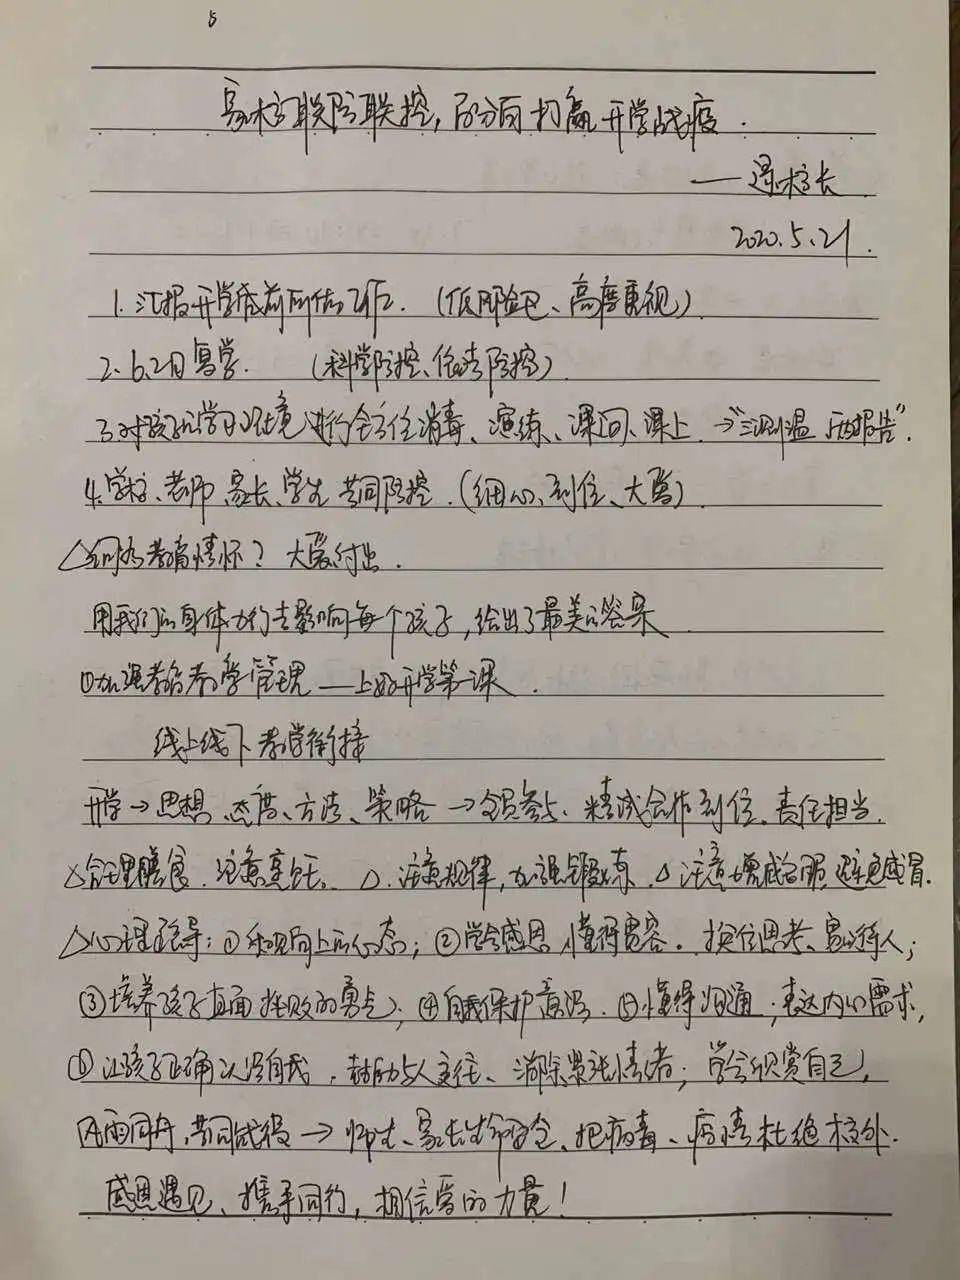 家校联防联控，百分百打赢开学战疫.
——校长
2020.5.21.
1.汇报开学底前所做工作.（高度重视）
2.6.2日复学.（科学防控、依法防控）
3.对孩子的学习环境进行全方位消毒、演练、课间、课上→"三测温 报告".
4.学校、老师、家长、学生共同防控.（细心、到位、大爱）
△何为教育情怀？大爱付出.
用我们的身体力行去影响每个孩子，给出了最美的答案
①加强教育教学管理——上好开学第一课.
线上线下教学衔接
开学→思想、态度、方法、策略→全员参与、精诚合作到位、责任担当.
△合理膳食.注意烹饪.△.注意规律，加强锻炼.△注意增减衣服 避免感冒.
△心理疏导：①积极向上的心态；②学会感恩、懂得宽容.换位思考、宽以待人；
③培养孩子直面挫败的勇气；④自我保护意识.⑤懂得沟通；表达内心需求，
⑥让孩子正确认识自我.鼓励与人交往、消除紧张情绪；学会欣赏自己，
风雨同舟，共同战疫→师生、家长生命安全、把病毒、疫情杜绝校外.
感恩遇见、携手同行，相信爱的力量！